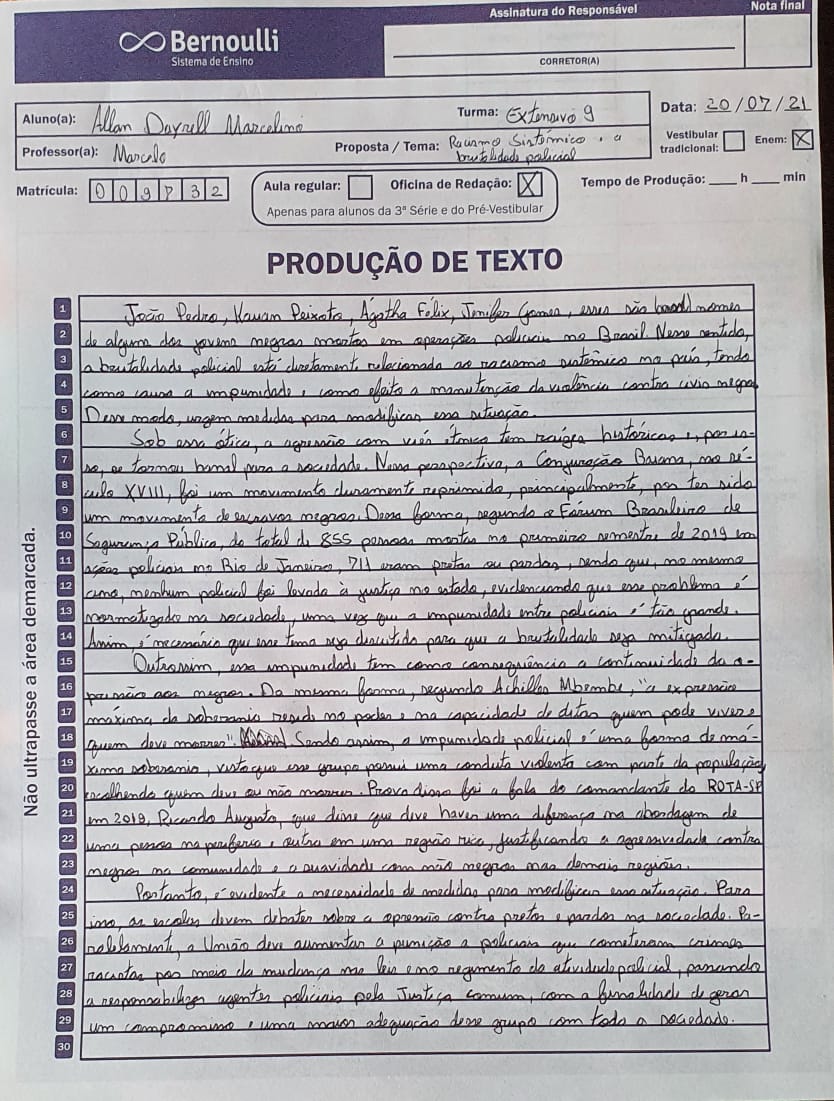 Assinatura do Responsável
Nota final
Bernoulli
Sistema de Ensino
CORRETOR(A)
Aluno(a): Allan Dayrell Marcelino
Turma: Extensivo 9
Data: 20/07/21
Professor(a): Marcelo
Proposta / Tema: Racismo Sistêmico e a
brutalidade policial
Vestibular
tradicional:
Enem: X
Matrícula: 009832
Aula regular:
Oficina de Redação: X
Tempo de Produção: ____ h ____ min
Apenas para alunos da 3ª Série e do Pré-Vestibular
PRODUÇÃO DE TEXTO
Não ultrapasse a área demarcada.
1 João Pedro, Kauan Peixoto, Ágatha Félix, Jenifer Gomes, esses são nomes
2 de alguns dos jovens negros mortos em operações policiais no Brasil. Nesse sentido,
3 a brutalidade policial está diretamente relacionada ao racismo sistêmico no país, tendo
4 como causa a impunidade e como efeito a manutenção da violência contra civis negros.
5 Desse modo, urgem medidas para modificar essa situação.
6 Sob essa ótica, a agressão com viés étnico tem raízes históricas e, por is-
7 so, se tornou banal para a sociedade. Nessa perspectiva, a Conjuração Baiana, no sé-
8 culo XVIII, foi um movimento duramente reprimido, principalmente, por ter sido
9 um movimento de escravos negros. Dessa forma, segundo o Fórum Brasileiro de
10 Segurança Pública, do total de 855 pessoas mortas no primeiro semestre de 2019 em
11 ações policiais no Rio de Janeiro, 711 eram pretas ou pardas, sendo que, no mesmo
12 ano, nenhum policial foi levado à justiça no estado, evidenciando que esse problema é
13 normatizado na sociedade, uma vez que a impunidade entre policiais é tão grande.
14 Assim, é necessário que esse tema seja discutido para que a brutalidade seja mitigada.
15 Outrossim, essa impunidade tem como consequência a continuidade da o-
16 pressão aos negros. Da mesma forma, segundo Achilles Mbembe, "a expressão
17 máxima da soberania reside no poder e na capacidade de ditar quem pode viver e
18 quem deve morrer". Sendo assim, a impunidade policial é uma forma de má-
19 xima soberania, visto que esse grupo possui uma conduta violenta com parte da população,
20 escolhendo quem deve ou não morrer. Prova disso foi a fala do comandante da ROTA-SP
21 em 2019, Ricardo Augusto, que disse que deve haver uma diferença na abordagem de
22 uma pessoa na periferia e outra em uma região rica, justificando a agressividade contra
23 negros na comunidade e a suavidade com não negros nas demais regiões.
24 Portanto, é evidente a necessidade de medidas para modificar essa situação. Para
25 isso, as escolas devem debater sobre a opressão contra pretos e pardos na sociedade. Pa-
26 ralelamente, a União deve aumentar a punição a policiais que cometeram crimes
27 racistas por meio da mudança nas leis e no regimento da atividade policial, passando
28 a responsabilizar agentes policiais pela Justiça comum, com a finalidade de gerar
29 um compromisso e uma maior adequação desse grupo com toda a sociedade.
30